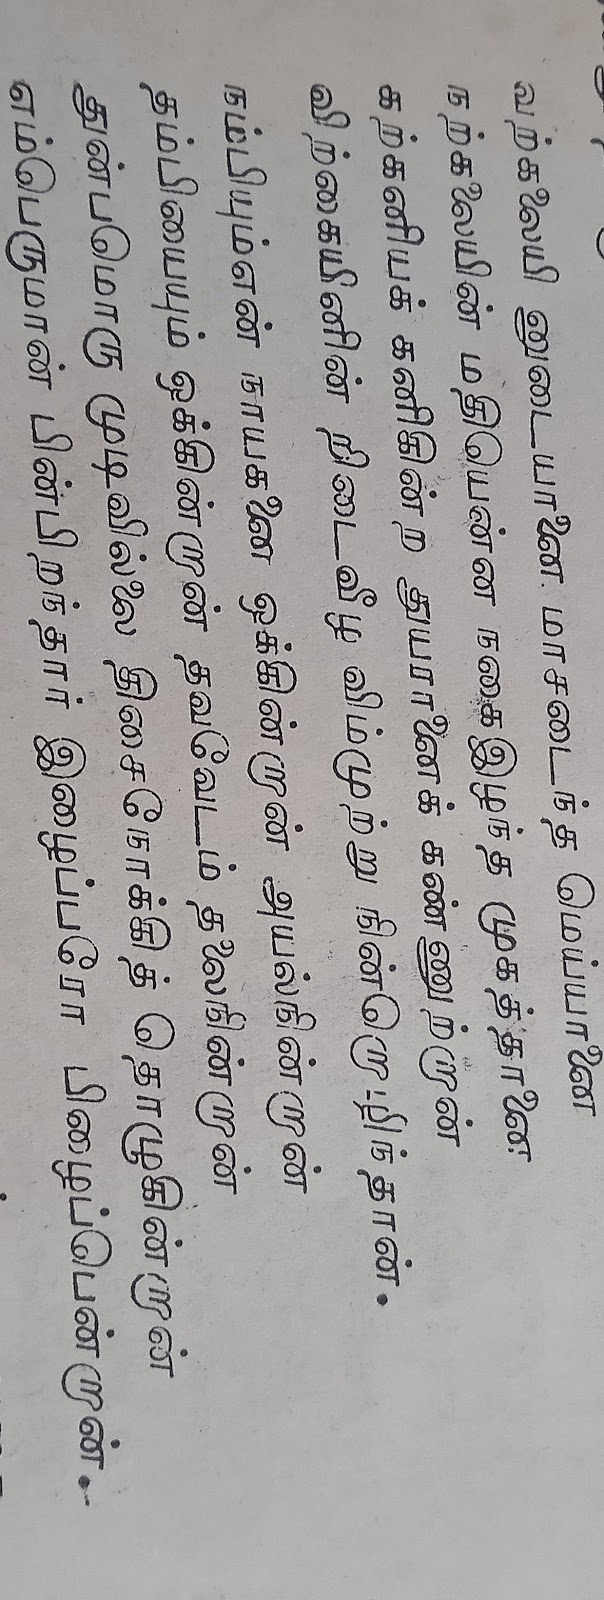 வற்கலையி னுடையானை மாசடைந்த மெய்யானை
நற்கலையின் மதியென்ன நகைஇழந்த முகத்தானை
கற்கனியக் கனிகின்ற துயரானைக் கண்ணுற்றான்
விற்கையினின் றிடைவீழ விம்முற்று நின்றொழிந்தான்.
நம்பியும்என் நாயகனை ஒக்கின்றான் அயல்நின்றான்
தம்பியையும் ஒக்கின்றான் தவவேடம் தலைநின்றான்
துன்பமொரு முடிவில்லை திசைநோக்கித் தொழுகின்றான்
எம்பெருமான் பின்பிறந்தார் இழைப்பரோ பிழைப்பென்றான்.